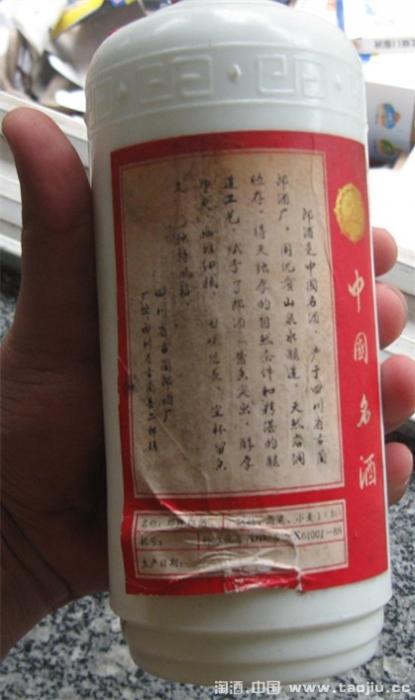 中国名酒
郎酒是中国名酒，产于四川省古蔺
郎酒厂。用优质山泉水酿造，天然岩洞
贮存，得天独厚的自然条件和精湛的酿
造工艺，赋予了郎酒酱香突出，醇厚
净爽，幽雅细腻，回味悠长，空杯留香
之独特风格。
四川省古蔺郎酒厂
厂址：四川省古蔺县二郎镇
名称： 高粱、小麦
批号： X61001-88
生产日期：
淘酒.中国 www.taojiu.cc